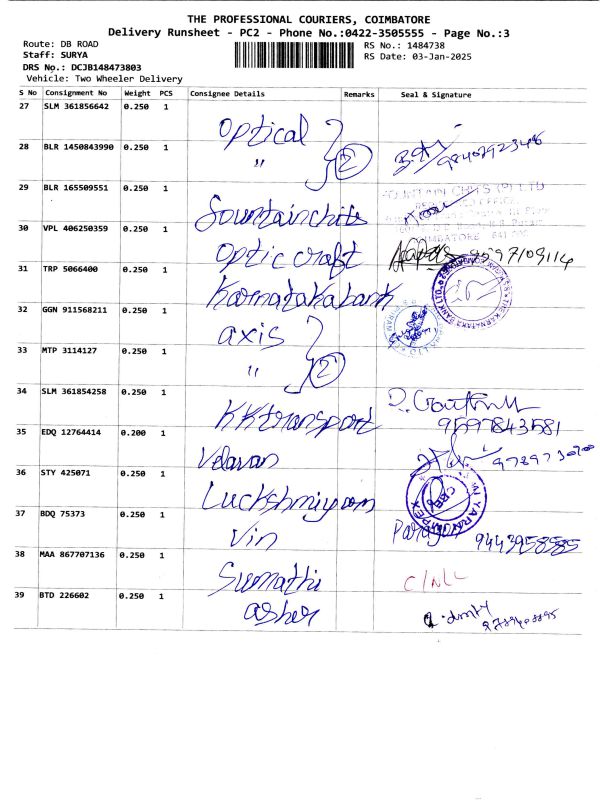 THE PROFESSIONAL COURIERS, COIMBATORE
Delivery Runsheet - PC2 - Phone No.:0422-3505555 - Page No.:3
Route: DB ROAD
RS No.: 1484738
Staff: SURYA
RS Date: 03-Jan-2025
DRS No.: DCJB148473803
Vehicle: Two Wheeler Delivery
S No Consignment No Weight PCS Consignee Details Remarks Seal & Signature
27 SLM 361856642 0.250 1 Optical
28 BLR 1450843990 0.250 1 " 2
29 BLR 165509551 0.250 1 Fountainchits
30 VPL 406250359 0.250 1 Optic craft
31 TRP 5066400 0.250 1 Karnataka bank
32 GGN 911568211 0.250 1 axis
33 MTP 3114127 0.250 1 " 2
34 SLM 361854258 0.250 1 KK transport 9597843581
35 EDQ 12764414 0.200 1 Velavan
36 STY 425071 0.250 1
37 BDQ 75373 0.250 1 Vin 9443958585
38 MAA 867707136 0.250 1 Sumathi
39 BTD 226602 0.250 1 asher